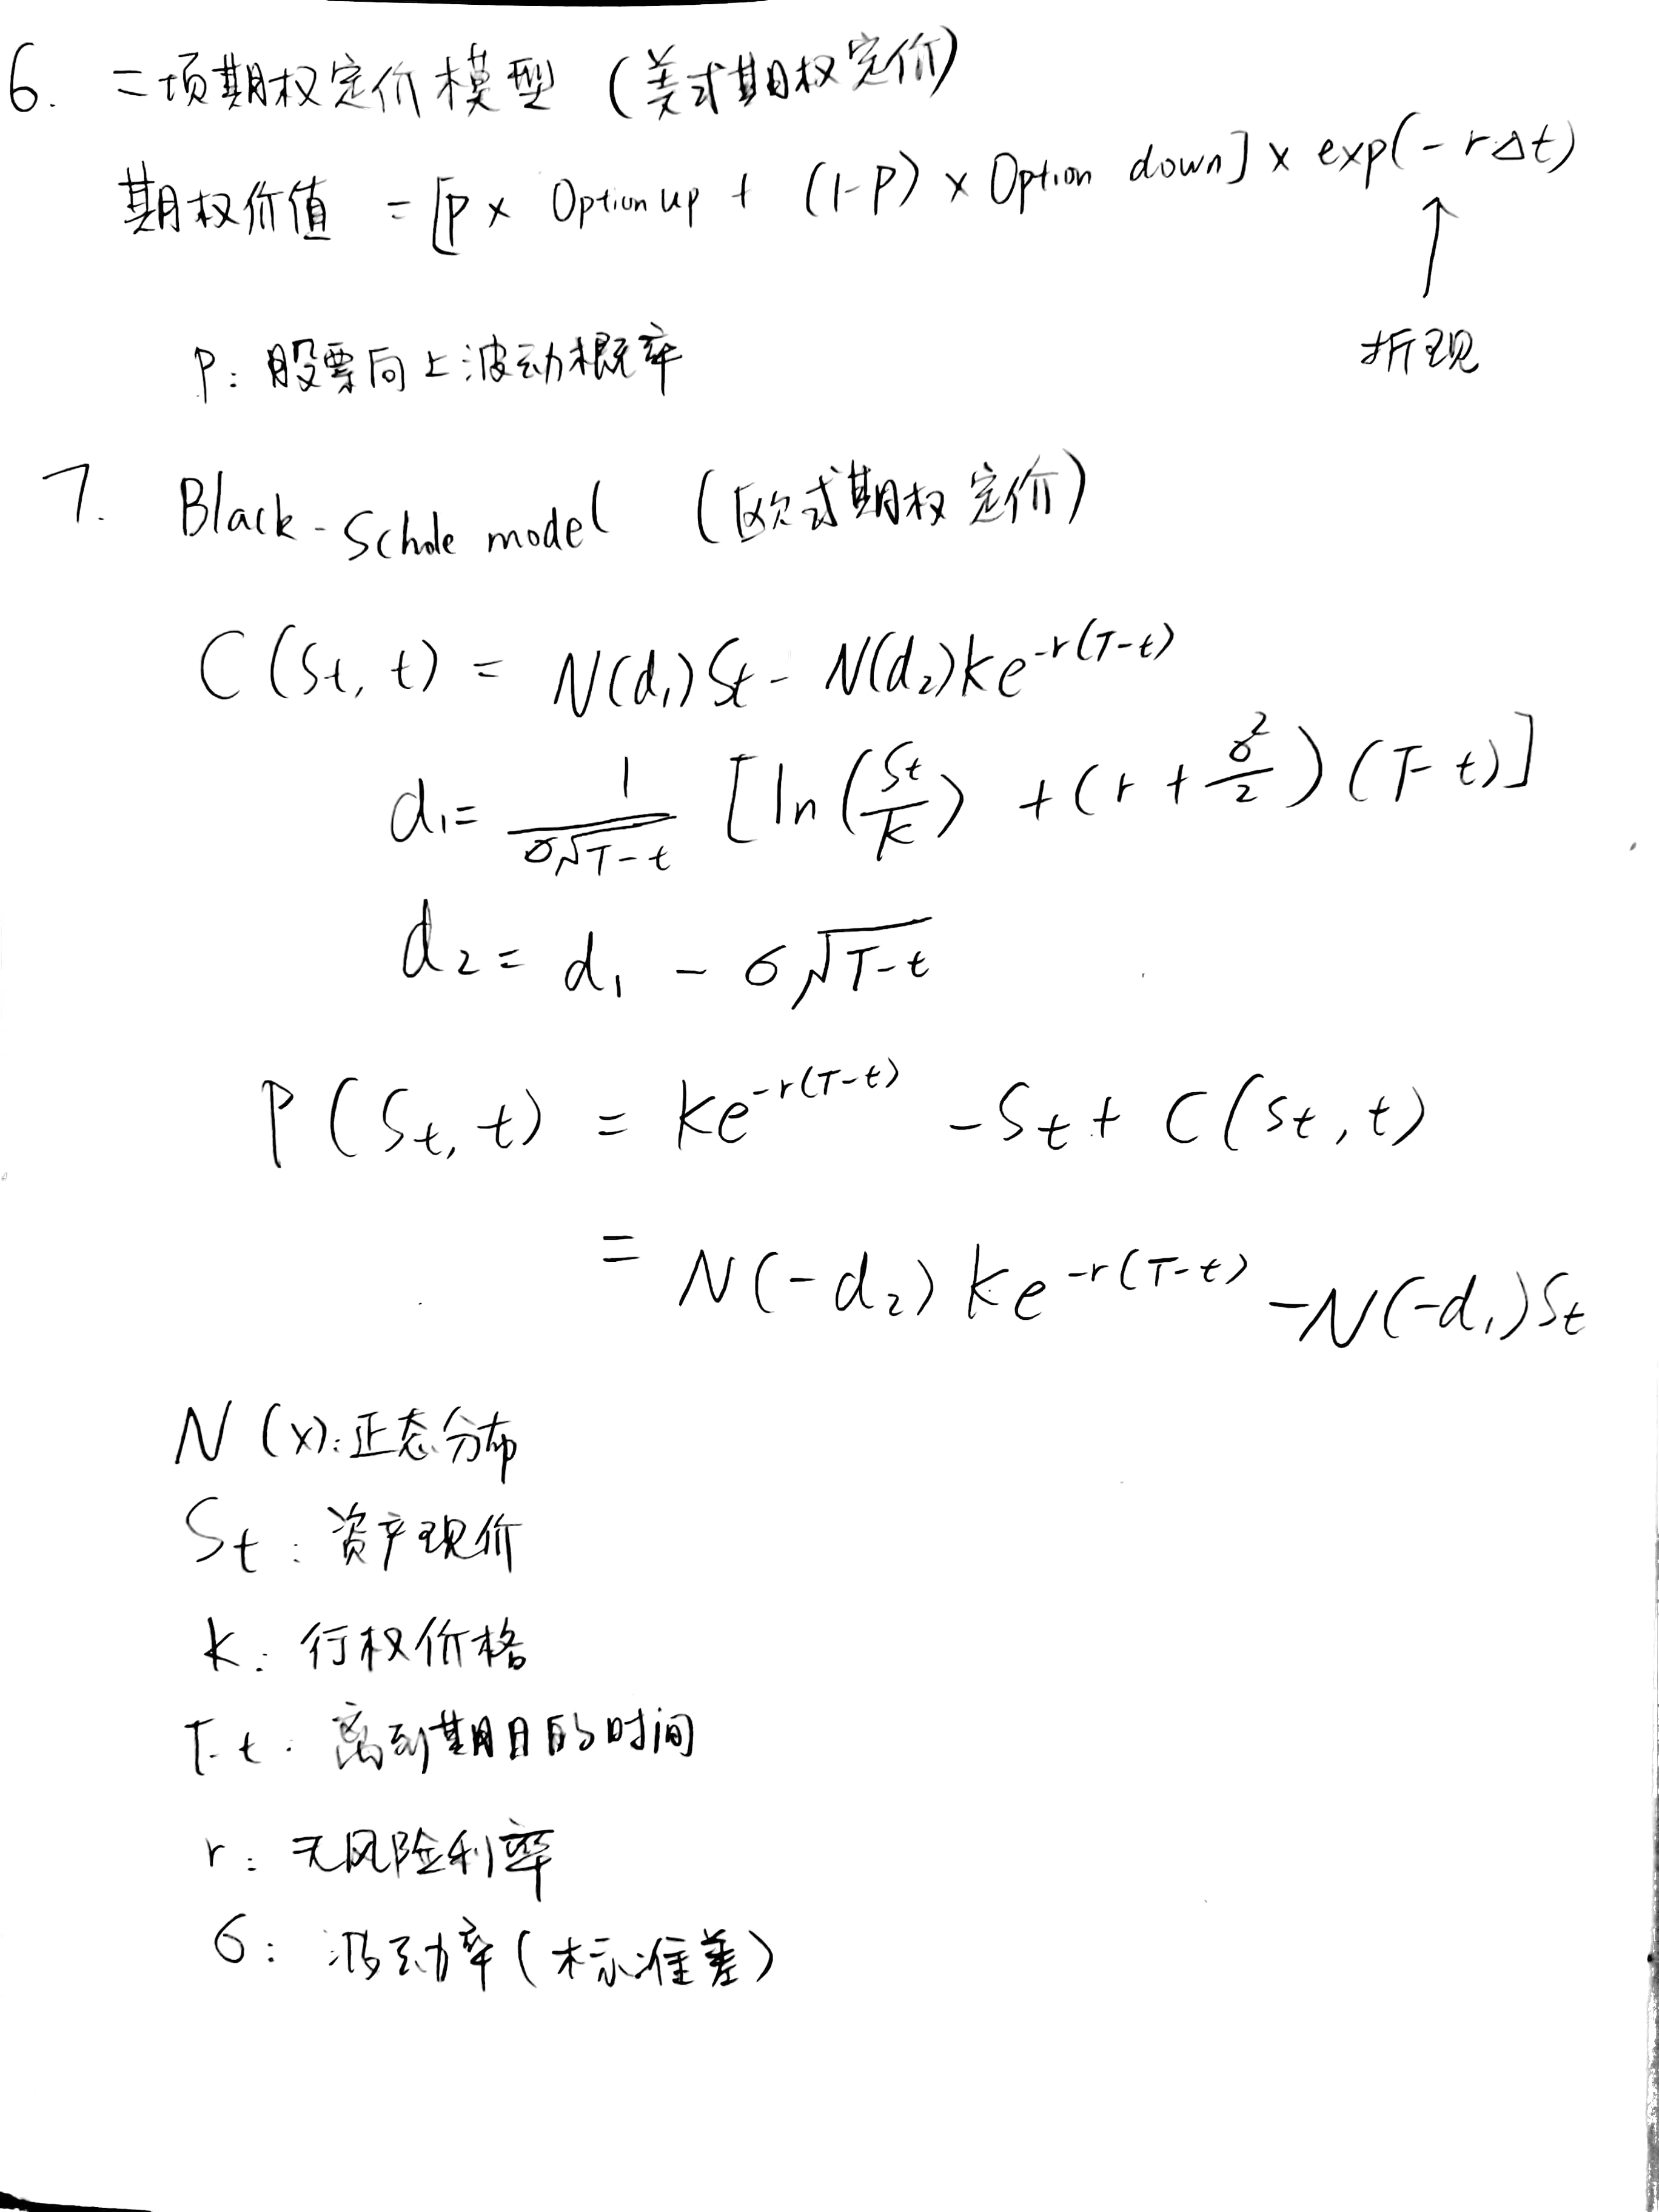 6. 二项期权定价模型 (美式期权定价)
期权价值 = [P × Option up + (1-P) × Option down] × exp(-r·Δt)
↑
折现
P: 股票向上波动概率
7. Black-Schole model (欧式期权定价)
C(St, t) = N(d₁)St - N(d₂)ke^{-r(T-t)}
d₁ = \frac{1}{σ√(T-t)} [ln(\frac{St}{k}) + (r + \frac{σ²}{2})(T-t)]
d₂ = d₁ - σ√(T-t)
P(St, t) = ke^{-r(T-t)} - St + C(St, t)
= N(-d₂)ke^{-r(T-t)} - N(-d₁)St
N(x): 正态分布
St: 资产现价
k: 行权价格
T-t: 离到期日的时间
r: 无风险利率
σ: 波动率(标准差)